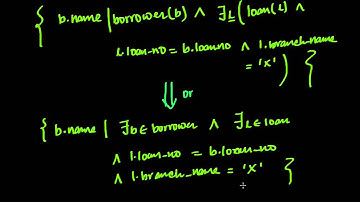 { b.name | borrower(b) ∧ ∃L (loan(L) ∧
l.loan-no = b.loanno ∧ l.branch_name
= 'x' ) }
⇓ or
{ b.name | ∃b ∈ borrower ∧ ∃L ∈ loan
∧ l.loan-no = b.loan-no
∧ l.branch_name = 'x' }